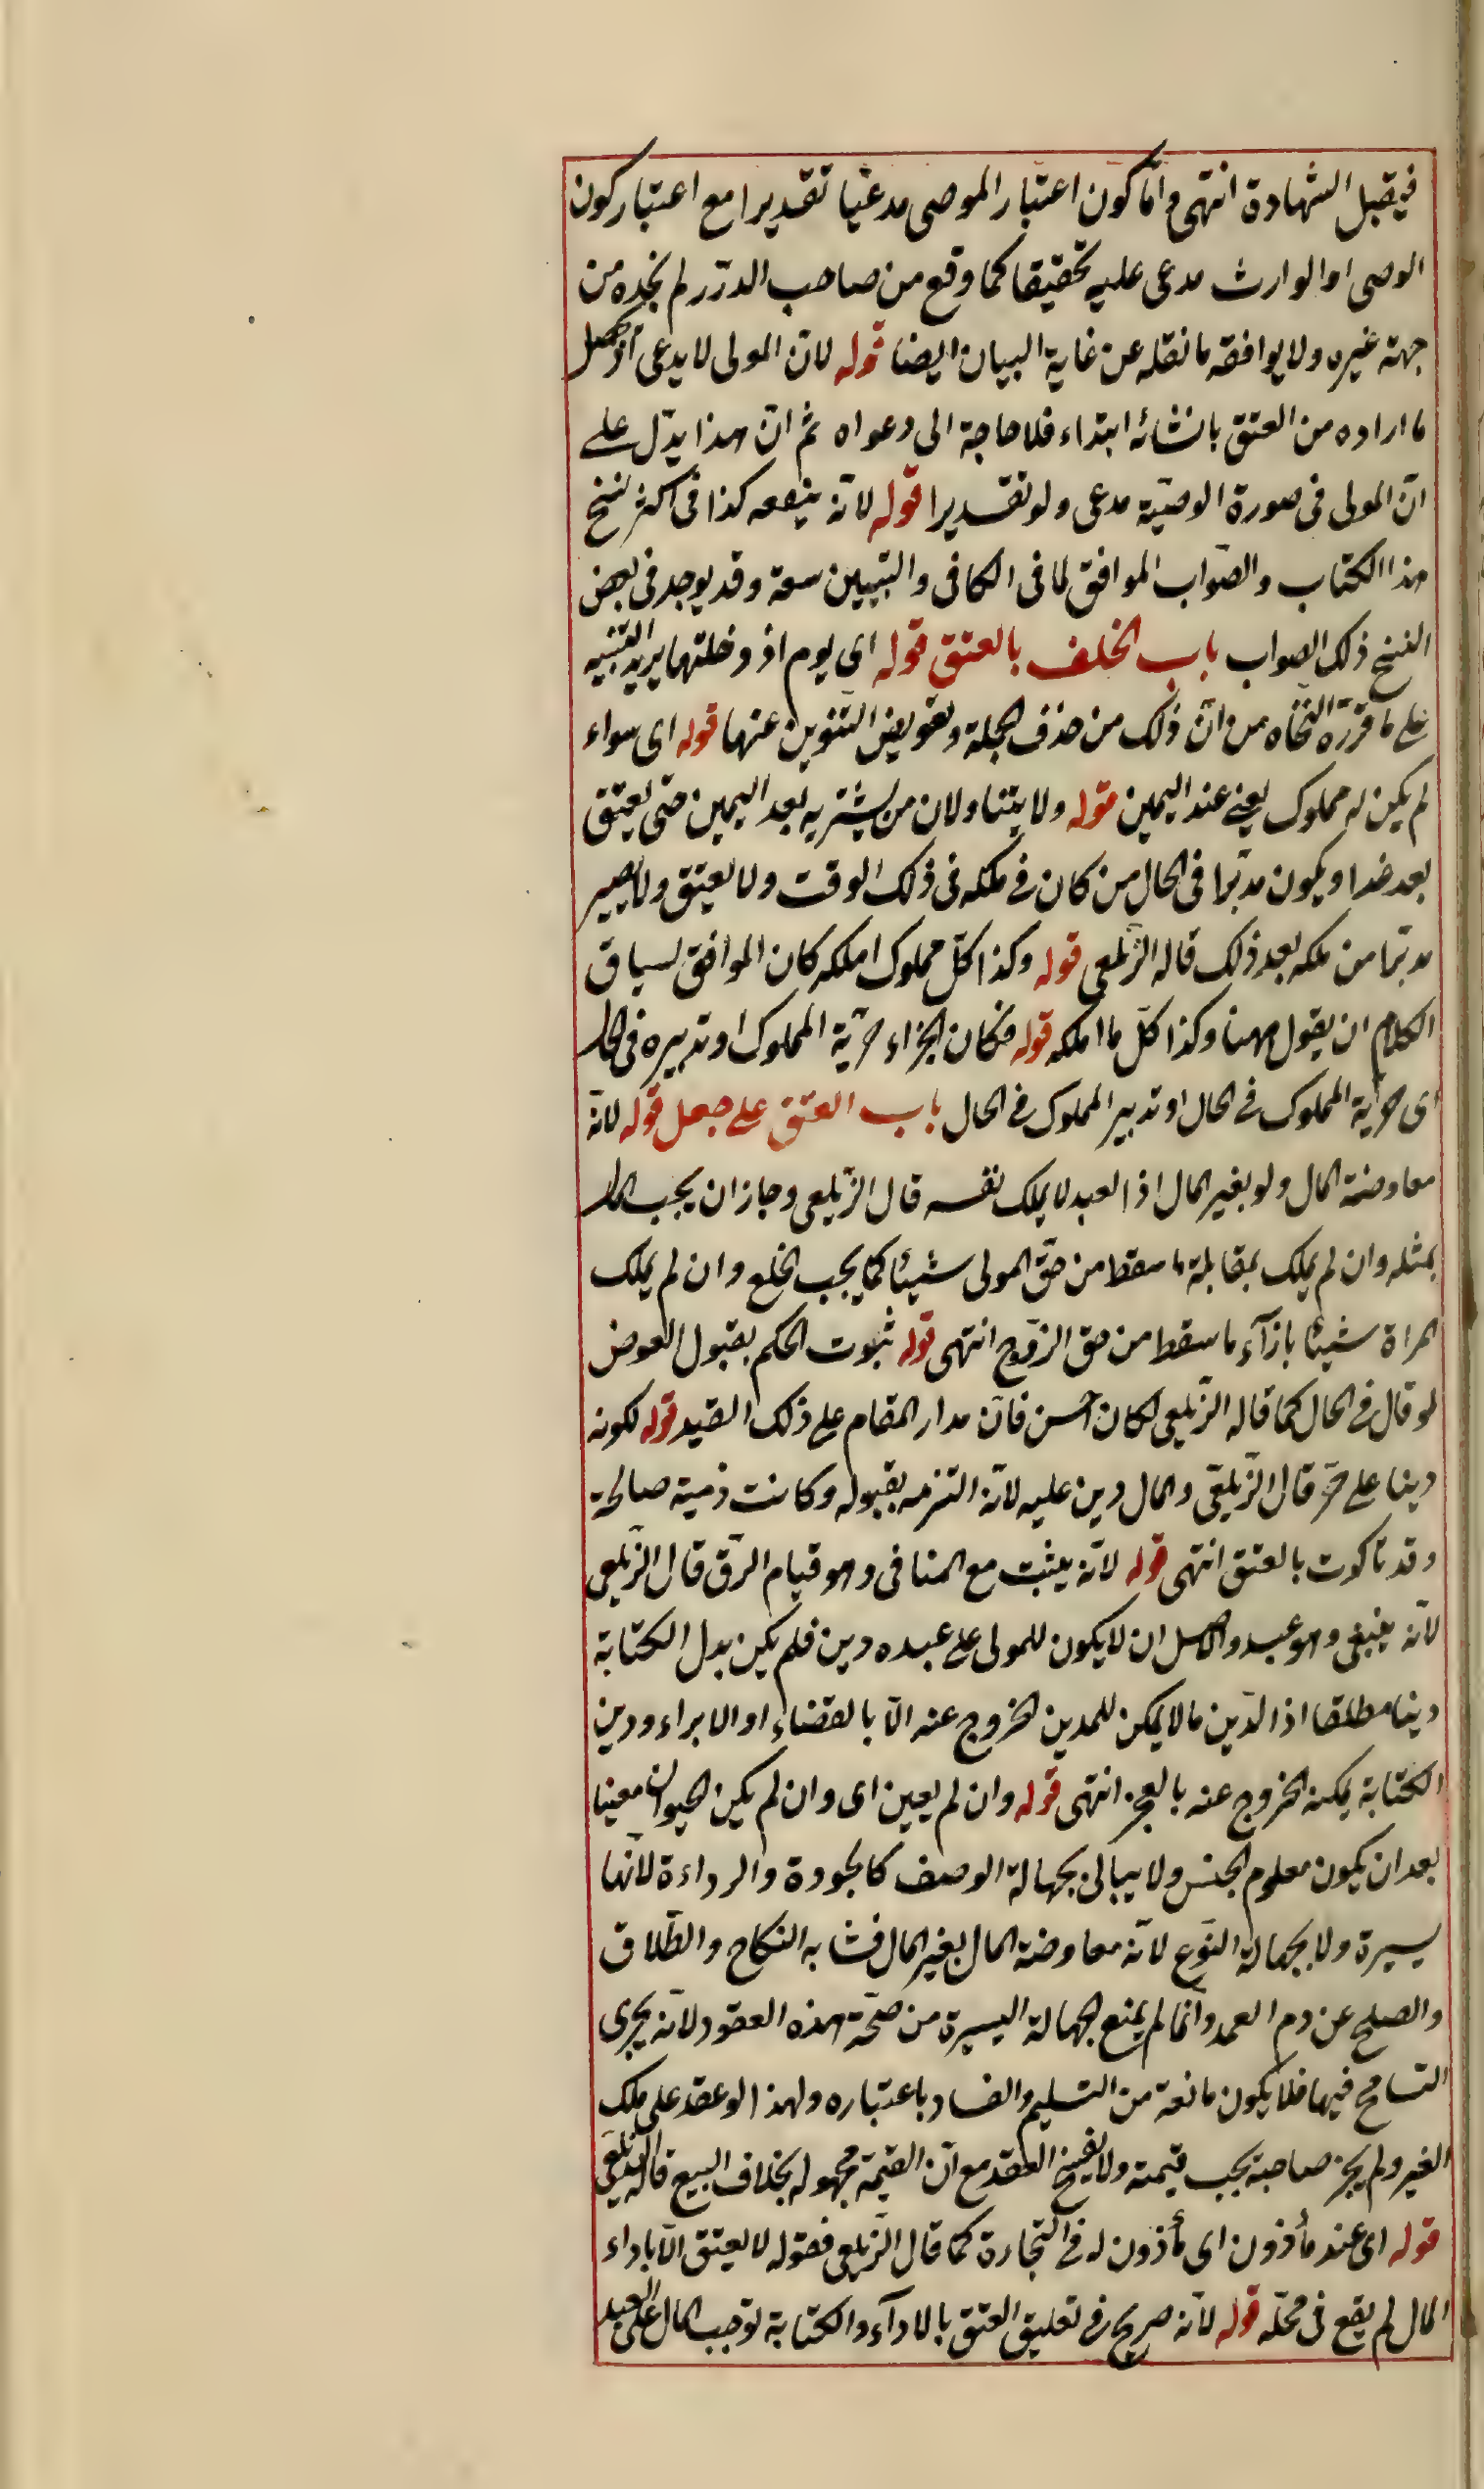 فيقبل الشهادة انتهى واما كون اعتبار الموصى مدعيا تقديرا مع اعتبار كون
الوصى او الوارث مدعى عليه تحقيقا كما وقع من صاحب الدرر لم نجده من
جهة غيره ولا يوافقه ما نقله عن غاية البيان ايضا قوله لان المولى لا يدعى
ما اراده من العتق بانشائه ابتداء فلا حاجة الى دعواه ثم ان هذا يدل على
ان المولى فى صورة الوصية مدعى ولو تقديرا قوله لانه ينفعه كذا فى اكثر نسخ
هذا الكتاب والصواب الموافق لما فى الكافى والتبيين سعة وقد يوجد فى بعض
النسخ ذلك الصواب باب الحلف بالعتق قوله اى يوم اذ دخلتها يريد التنبيه
على ما قرره النحاة من ان ذلك من حذف الجملة وتعويض التنوين عنها قوله اى سواء
لم يكن له مملوك يعنى عند اليمين قوله ولا يتناولان من يشتريه بعد اليمين حتى يعتق
بعد غد او يكون مدبرا فى الحال من كان فى ملكه فى ذلك الوقت ولا يعتق ولا يصير
مدبرا من ملكه بعد ذلك قاله الزيلعى قوله وكذا كل مملوك املكه كان الموافق لسياق
الكلام ان يقول ههنا وكذا كل ما املكه قوله فكان الجزاء حرية المملوك او تدبيره فى الحال
اى حرية المملوك فى الحال او تدبير المملوك فى الحال باب العتق على جعل قوله لانه
معاوضة المال ولو بغير المال اذ العبد لا يملك نفسه قال الزيلعى وجاز ان يجب المال
بمثله وان لم يملك بمقابلة ما سقط من حق المولى شيئا كما يجب الخلع وان لم يملك
المراة شيئا بازاء ما سقط من حق الزوج انتهى قوله ثبوت الحكم بقبول العوض
لو قال فى الحال كما قاله الزيلعى لكان احسن فان مدار المقام على ذلك القيد قوله لكونه
دينا على حر قال الزيلعى والمال دين عليه لانه التزمه بقبوله وكانت ذميته صالحة
وقد تاكوت بالعتق انتهى قوله لانه يثبت مع المنافى وهو قيام الرق قال الزيلعى
لانه ينبغى وهو عبد والاصل ان لا يكون للمولى على عبده دين فلم يكن بدل الكتابة
دينا مطلقا اذ الدين ما لا يمكن للمدين الخروج عنه الا بالقضاء او الابراء ودين
الكتابة يمكنه الخروج عنه بالعجز انتهى قوله وان لم يعين اى وان لم يكن الحيوان معينا
بعد ان يكون معلوم الجنس ولا يبالى بجهالة الوصف كالجودة والرداءة لانها
يسيرة ولا بجهالة النوع لانه معاوضة المال بغير المال فشابه النكاح والطلاق
والصلح عن دم العمد وانما لم يمنع الجهالة اليسيرة من صحة هذه العقود لانه يجرى
التسامح فيها فلا يكون مانعة من التسليم والفساد باعتباره ولهذا لو عقد على ملك
الغير ولم يجز صاحبه يجب قيمته ولا يفسخ العقد مع ان القيمة مجهولة بخلاف البيع قاله الزيلعى
قوله اى عند مأذون اى مأذون له فى التجارة كما قال الزيلعى فقوله لا يعتق الا باداء
المال لم يقع فى محله قوله لانه صريح فى تعليق العتق بالاداء والكتابة توجب المال على العبد